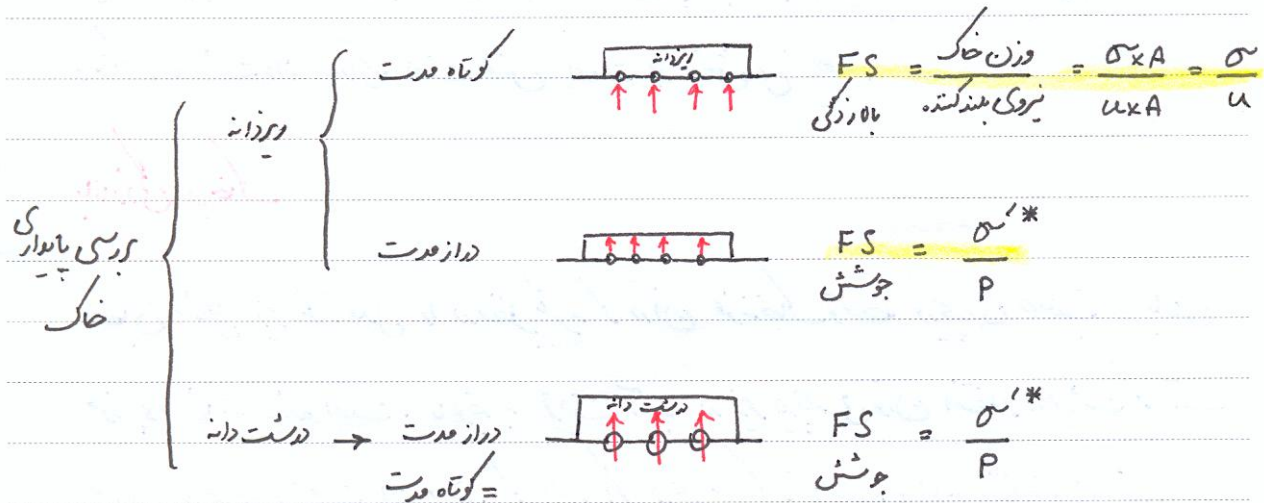 بررسی پایداری خاک
ریزدانه
کوتاه مدت
ریزدانه
FS باد زدگی = وزن خاک / نیروی بلند کننده = σ×A / u×A = σ / u
دراز مدت
FS جوشش = σ'* / P
درشت دانه → دراز مدت = کوتاه مدت
درشت دانه
FS جوشش = σ'* / P